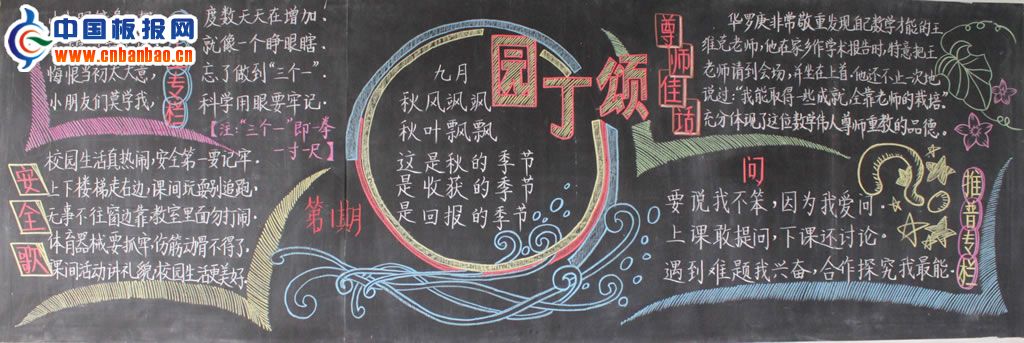 中国板报网
www.cnbanbao.cn
度数天天在增加！
就像一个睁眼瞎．
悔恨当初太大意，
忘了做到“三个一”．
小朋友们莫学我，
科学用眼要牢记．
【注：“三个一”即一拳
一寸一尺】
专栏
安全歌
校园生活真热闹，安全第一要记牢．
上下楼梯走右边，课间玩耍别追跑，
无事不往窗边靠，教室里面勿打闹．
体育器械要抓牢，伤筋动骨不得了．
课间活动讲礼貌，校园生活更美好．
第1期
九月
秋风飒飒
秋叶飘飘
这是秋的季节
是收获的季节
是回报的季节
园丁颂
尊师佳话
华罗庚非常敬重发现自己数学才能的王
维克老师，他在家乡作学术报告时，特意把王
老师请到会场，并坐在上首．他还不止一次地
说过：“我能取得一些成就，全靠老师的栽培．”
充分体现了这位数学伟人尊师重教的品德。
问
要说我不笨，因为我爱问．
上课敢提问，下课还讨论。
遇到难题我兴奋，合作探究我最能．
推普专栏